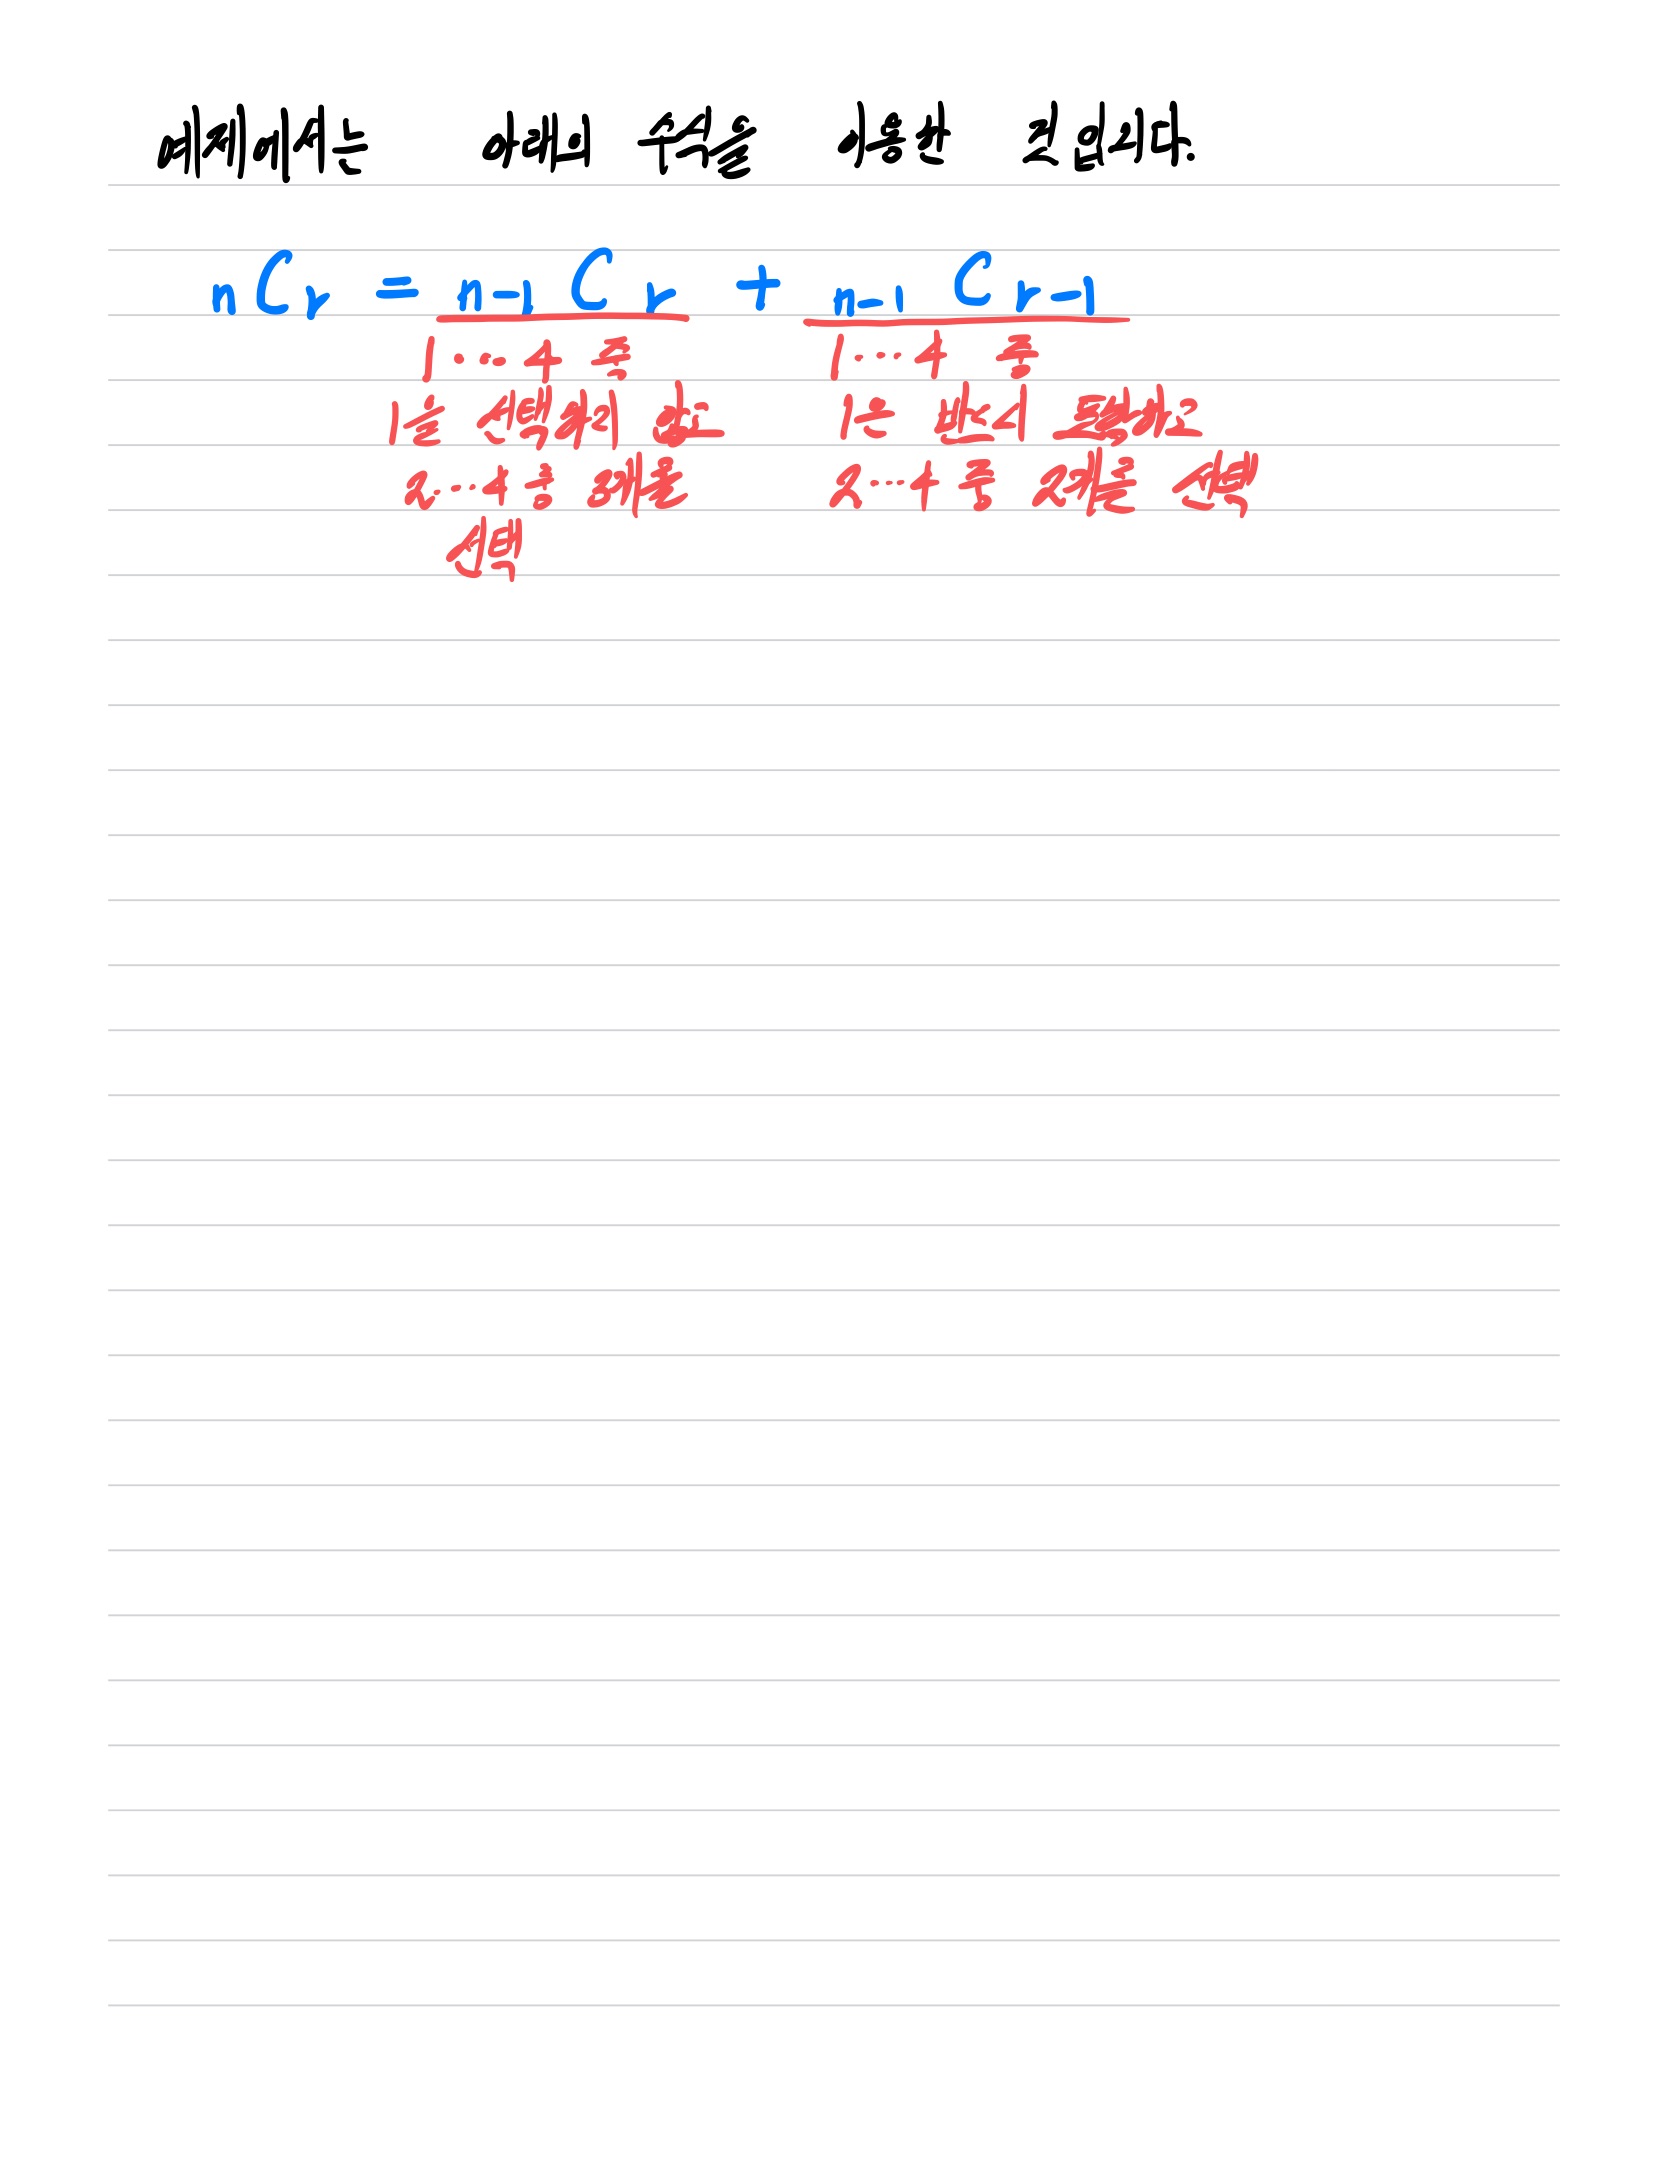 예제에서는 아래의 수식을 이용한 것입니다.
nCr = n-1 C r + n-1 C r-1
1...4 중
1을 선택하지 않고
2...4 중 3개를
선택
1...4 중
1은 반드시 포함하고
2...4 중 2개를 선택